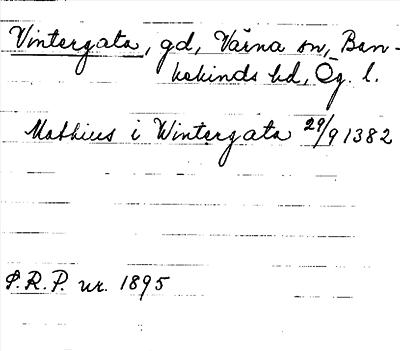 Vintergata, gd, Värna sn, Ban-
kekinds hd, Ög. l.
Mathius i Wintergata 29/9 1382
S.R.P. nr. 1895